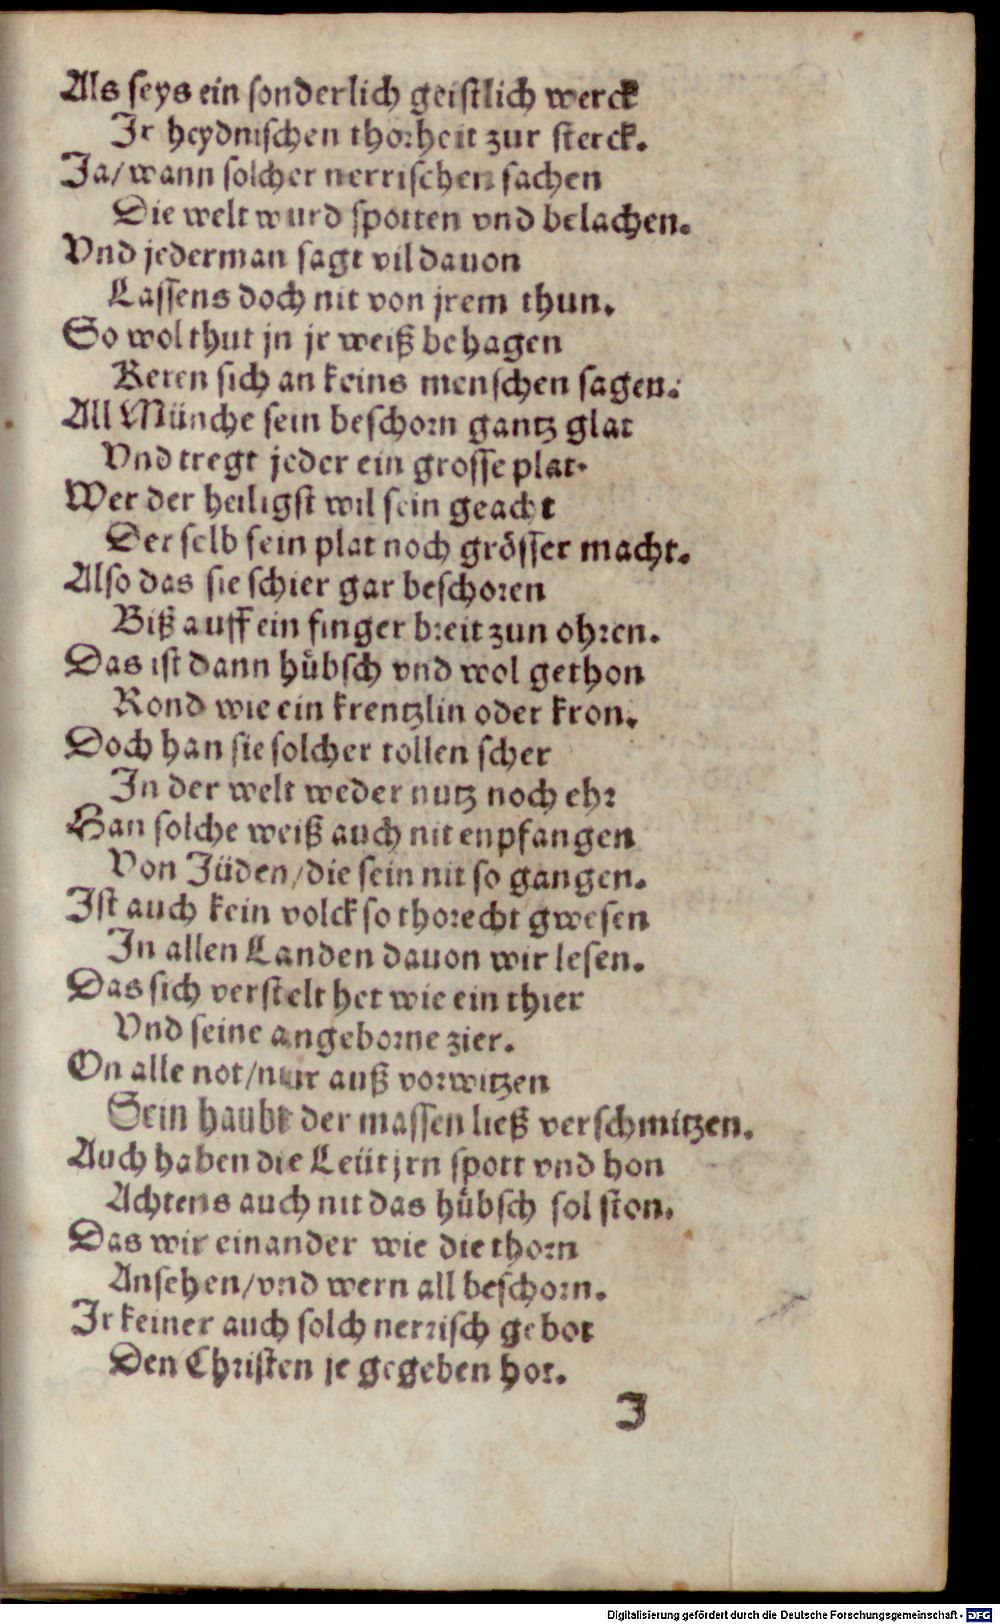 Als seys ein sonderlich geistlich werck
Jr heydnischen thorheit zur sterck.
Ja/wann solcher nerrischen sachen
Die welt wurd spotten vnd belachen.
Vnd jederman sagt vil dauon
Lassens doch nit von jrem thun.
So wol thut jn jr weiß behagen
Keren sich an keins menschen sagen.
All Münche sein beschorn gantz glat
Vnd tregt jeder ein grosse plat.
Wer der heiligst wil sein geacht
Der selb sein plat noch grösser macht.
Also das sie schier gar beschoren
Biß auff ein finger breit zun ohren.
Das ist dann hübsch vnd wol gethon
Rond wie ein krentzlin oder kron.
Doch han sie solcher tollen scher
In der welt weder nutz noch ehr
Han solche weiß auch nit enpfangen
Von Jüden/die sein nit so gangen.
Ist auch kein volck so thorecht gwesen
In allen Landen dauon wir lesen.
Das sich verstelt het wie ein thier
Vnd seine angeborne zier.
On alle not/nur auß vorwitzen
Sein haubt der massen ließ verschmitzen.
Auch haben die Leüt jrn spott vnd hon
Achtens auch nit das hübsch sol ston.
Das wir einander wie die thorn
Ansehen/vnd wern all beschorn.
Jr keiner auch solch nerrisch gebot
Den Christen je gegeben hot.
J
Digitalisierung gefördert durch die Deutsche Forschungsgemeinschaft - DFG